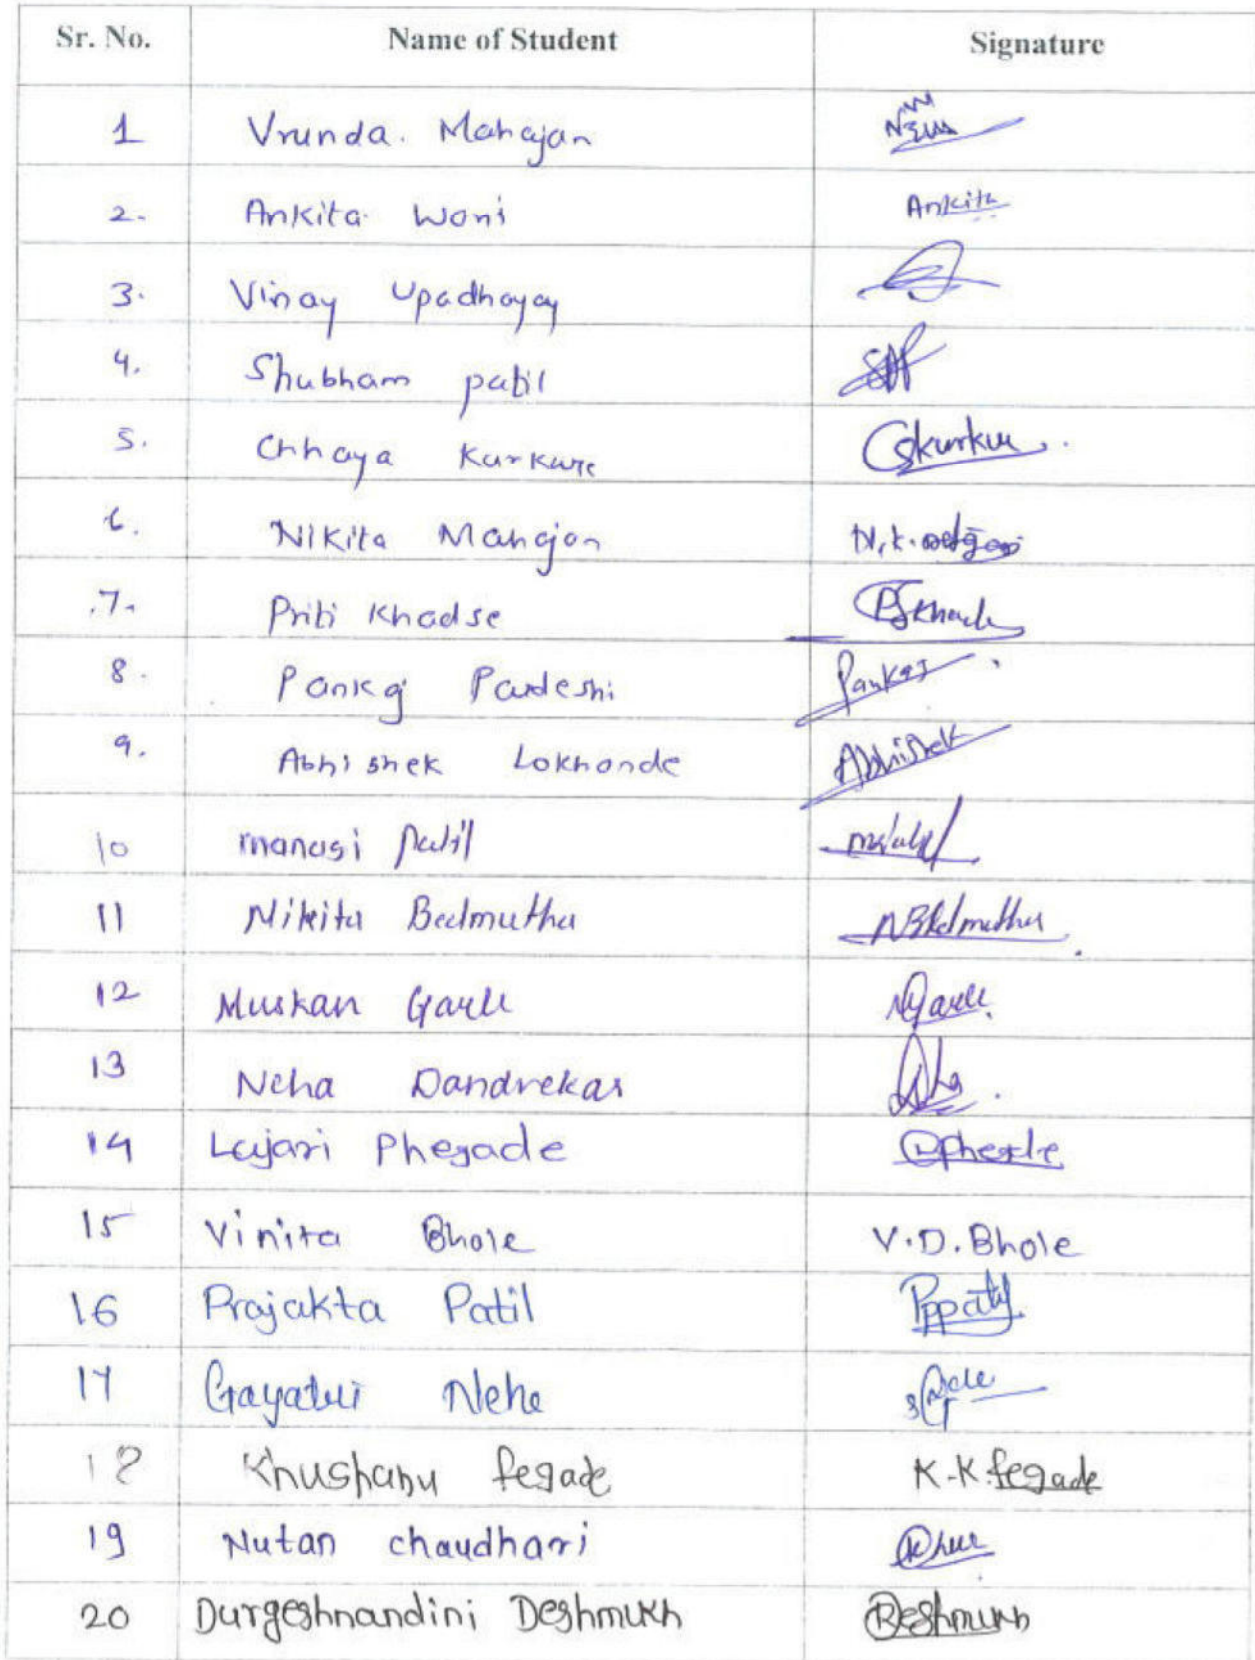 Sr. No. Name of Student Signature
1 Vrunda. Mahajan
2. Ankita Wani Ankita
3. Vinay Upadhayay
4. Shubham patil
5. Chhaya Kurkure
6. Nikita Mahajan
7. Priti Khadse
8. Pankaj Pardeshi Pankaj
9. Abhishek Lokhande Abhishek
10 manasi Patil
11 Nikita Bedmutha
12 Muskan
13 Neha Dandvekar
14 Lajari Phegade
15 Vinita Bhole V.D.Bhole
16 Prajakta Patil PPpatil
17 Gayatri Nehe
18 Khushabu fegade K-K.fegade
19 Nutan chaudhari
20 Durgeshnandini Deshmukh Deshmukh